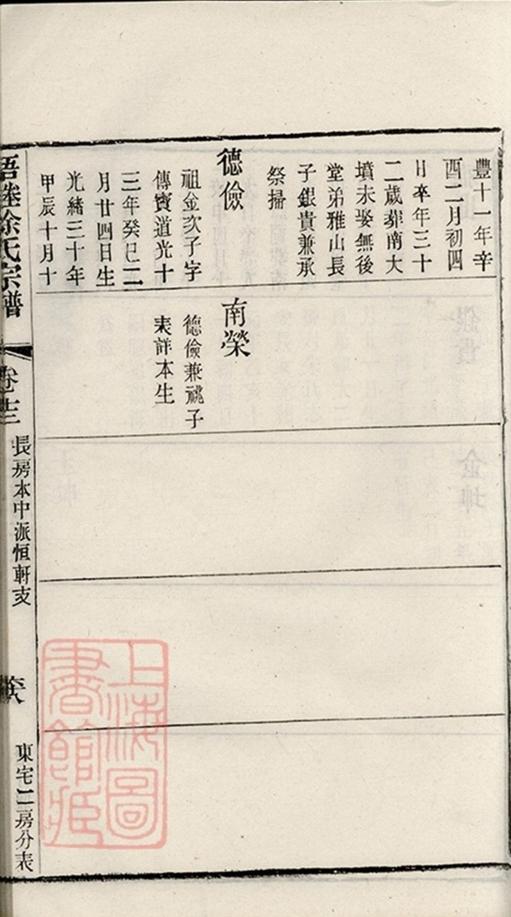 豐十一年辛
酉二月初四
日卒年三十
二歲葬南大
墳未娶無後
堂弟雅山長
子銀貴兼承
祭掃
德儉
祖金次子字
傳寶道光十
三年癸巳二
月廿四日生
光緒三十年
甲辰十月十
南榮
德儉兼祧子
表詳本生
徐氏宗譜
長房本中派恒軒支
東宅二房分表
上海圖
書館藏